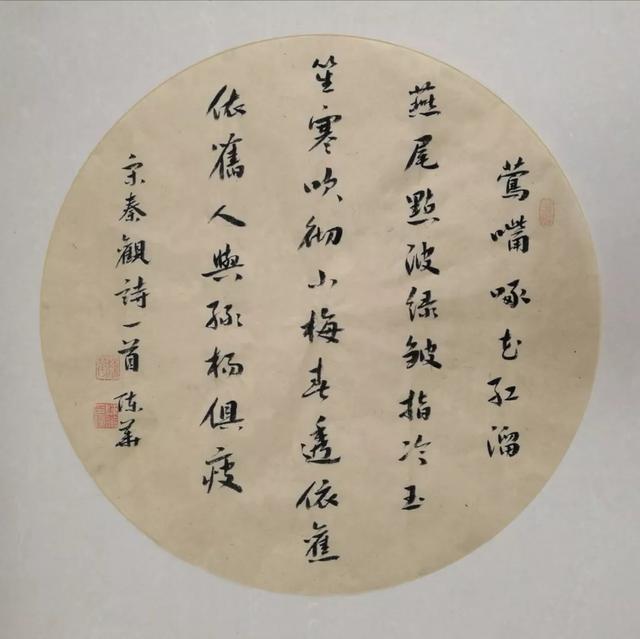 鶯嘴啄花紅溜
燕尾點波緑皱指冷玉
笙寒吹彻小梅春透依舊
依舊人與緑杨俱瘦
宋秦觀詩一首 陈華